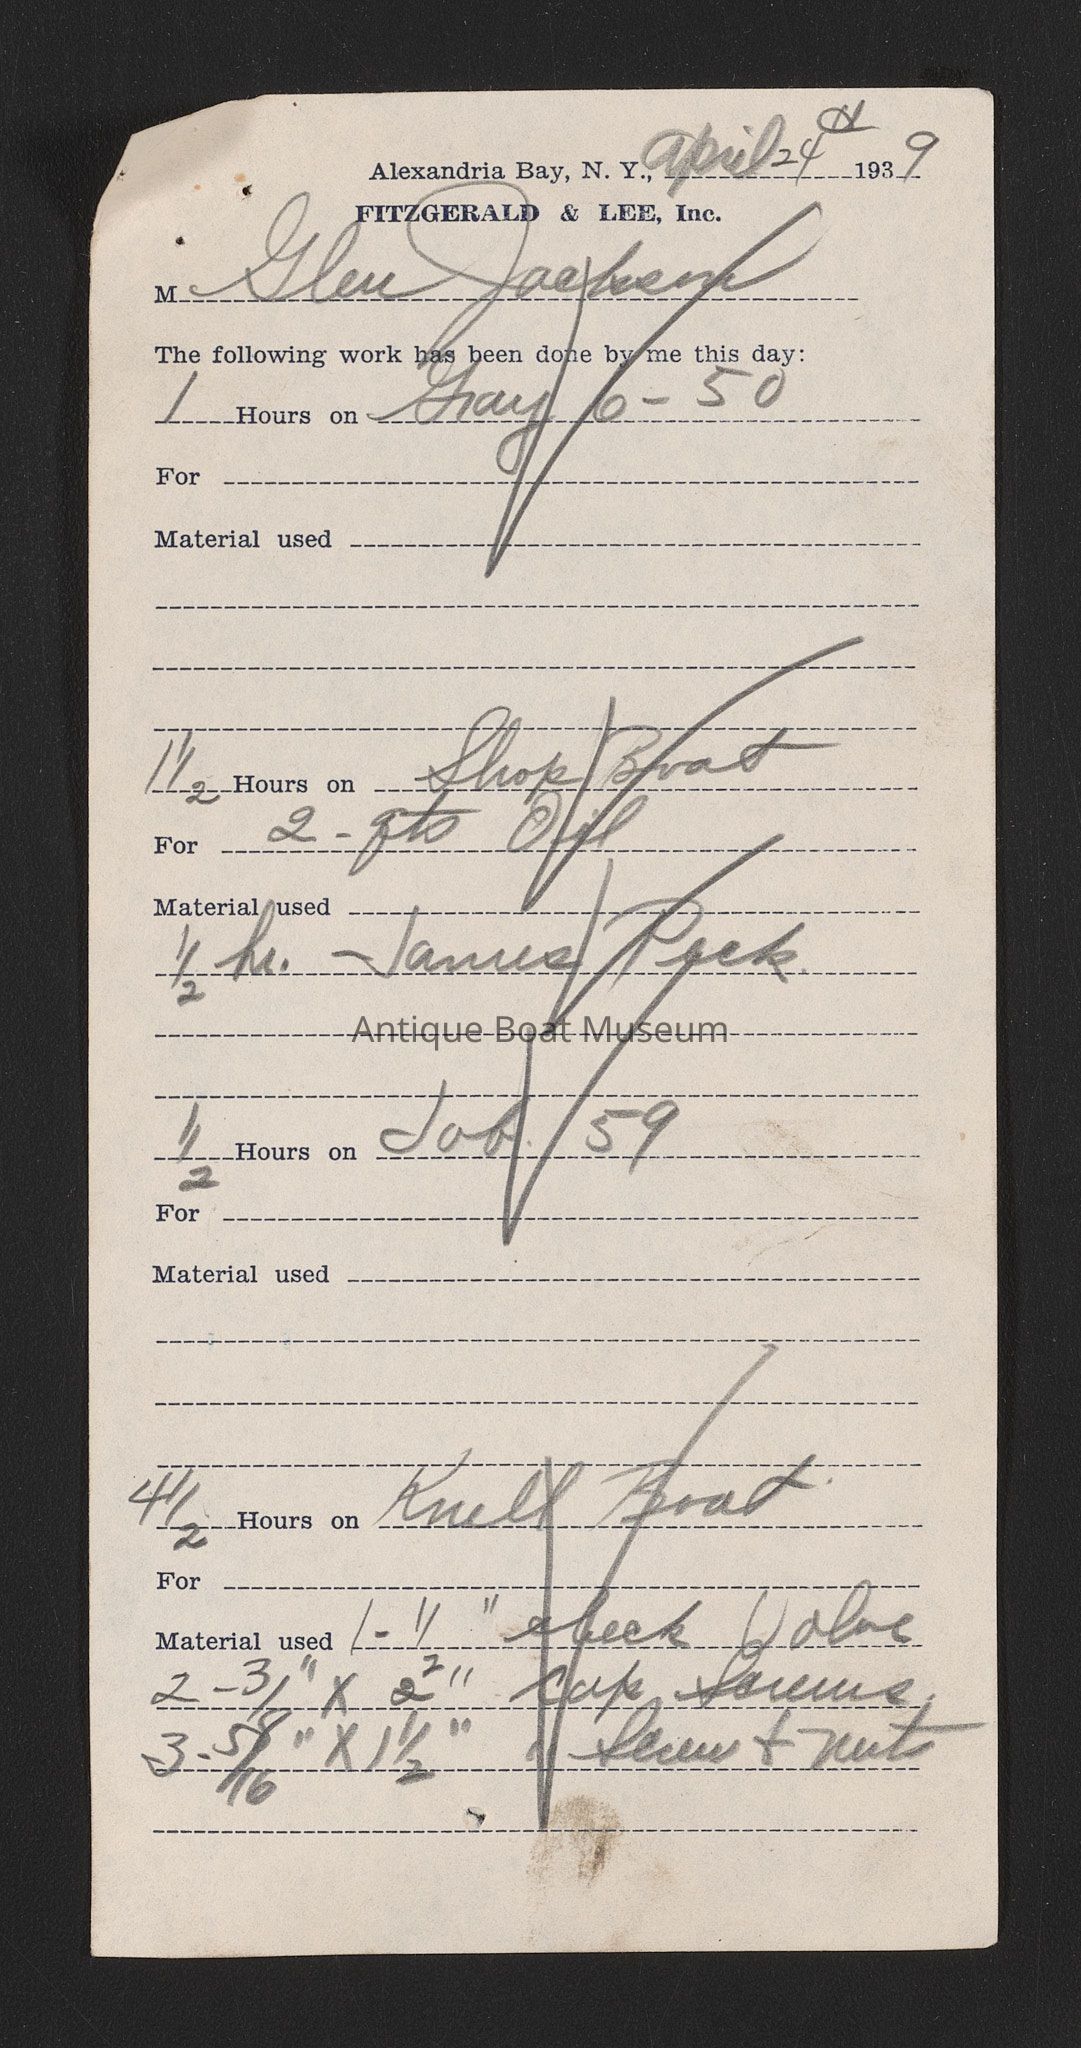 Alexandria Bay, N. Y., April 24th 1939
FITZGERALD & LEE, Inc.
M Glen Jackson
The following work has been done by me this day:
1 Hours on Gray 6-50
For
Material used
1 1/2 Hours on Shop Boat
For 2-qts Oil
Material used
1/2 hr. - James Peck.
Antique Boat Museum
1/2 Hours on Job 59
For
Material used
4 1/2 Hours on Knell Boat
For
Material used 1- " check Valve
2 - " X 2" Cap Screws
3 - 5/16" X 1 1/2" " Screws + nuts